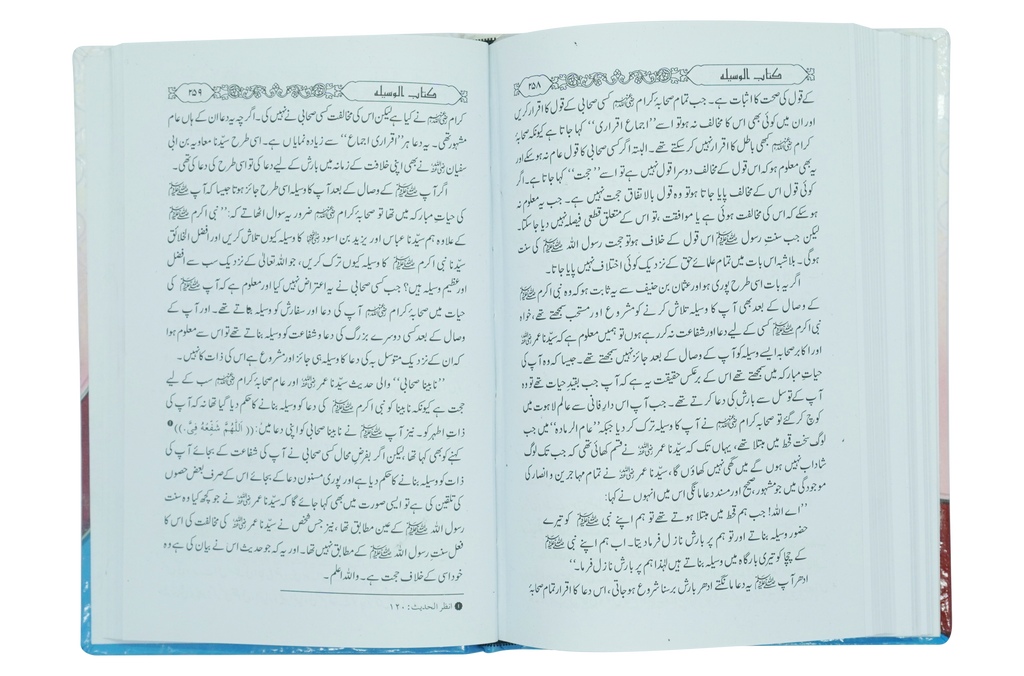 کتاب الوسیله
۲۵۸
کے قول کی صحت کا اثبات ہے۔ جب تمام صحابۂ کرام ﷢ کسی صحابی کے قول کا اقرار کریں
اور ان میں کوئی بھی اس کا مخالف نہ ہو تو اسے "اجماع اقراری" کہا جاتا ہے کیونکہ صحابۂ
کرام ﷢ کبھی باطل کا اقرار نہیں کر سکتے تھے۔ البتہ اگر کسی صحابی کا قول عام نہ ہو سکے اور
یہ بھی معلوم ہو کہ اس قول کے مخالف دوسرا قول نہیں ہے تو اسے "حجت" کہا جاتا ہے۔ اگر
کوئی قول اس کے مخالف پایا جاتا ہو تو وہ قول بالاتفاق حجت نہیں ہے۔ جب یہ معلوم نہ
ہو سکے کہ اس کی مخالفت ہوئی ہے یا موافقت، تو اس کے متعلق قطعی فیصلہ نہیں دیا جا سکتا۔
لیکن جب سنتِ رسول ﷺ اس قول کے خلاف ہو تو حجت رسول اللہ ﷺ کی سنت
ہو گی۔ بلاشبہ اس بات میں تمام علمائے حق کے نزدیک کوئی اختلاف نہیں پایا جاتا۔
اگر یہ بات اسی طرح پوری ہو اور عثمان بن حنیف سے یہ ثابت ہو کہ وہ نبی اکرم ﷺ
کے وصال کے بعد بھی آپ کا وسیلہ تلاش کرنے کو مشروع اور مستحب سمجھتے تھے، خواہ
نبی اکرم ﷺ کسی کے لیے دعا اور شفاعت نہ کر رہے ہوں تو ہمیں معلوم ہے کہ سیّدنا عمر ﷜
اور اکابر صحابہ ایسے وسیلہ کو آپ کے وصال کے بعد جائز نہیں سمجھتے تھے۔ جیسا کہ وہ آپ کی
حیاتِ مبارکہ میں سمجھتے تھے اس کے برعکس حقیقت یہ ہے کہ آپ جب بقیدِ حیات تھے تو وہ
آپ کے توسل سے بارش کی دعا کرتے تھے۔ جب آپ اس دارِ فانی سے عالم لاہوت میں
کوچ کر گئے تو صحابہ کرام ﷢ نے آپ کا وسیلہ ترک کر دیا جبکہ "عام الرمادہ" میں جب
لوگ سخت قحط میں مبتلا تھے، یہاں تک کہ سیّدنا عمر ﷜ نے قسم کھائی تھی کہ جب تک لوگ
شاداب نہیں ہوں گے میں گھی نہیں کھاؤں گا، سیّدنا عمر ﷜ نے تمام مہاجرین و انصار کی
موجودگی میں جو مشہور، صحیح اور مسند دعا مانگی اس میں انہوں نے کہا:
"اے اللہ! جب ہم قحط میں مبتلا ہوتے تھے تو ہم اپنے نبی ﷺ کو تیرے
حضور وسیلہ بناتے اور تو ہم پر بارش نازل فرما دیتا۔ اب ہم اپنے نبی ﷺ
کے چچا کو تیری بارگاہ میں وسیلہ بناتے ہیں لہٰذا ہم پر بارش نازل فرما۔"
ادھر آپ ﷺ یہ دعا مانگتے ادھر بارش برسنا شروع ہو جاتی، اس دعا کا اقرار تمام صحابۂ
کتاب الوسیله
۲۵۹
کرام ﷢ نے کیا ہے لیکن اس کی مخالفت کسی صحابی نے نہیں کی۔ اگرچہ یہ دعا ان کے ہاں عام
مشہور تھی۔ یہ دعا ہر "اقراری اجماع" سے زیادہ نمایاں ہے۔ اسی طرح سیّدنا معاویہ بن ابی
سفیان ﷠ نے بھی اپنی خلافت کے زمانہ میں بارش کے لیے دعا کی تو اسی طرح کی دعا کی تھی۔
اگر آپ ﷺ کے وصال کے بعد آپ کا وسیلہ اسی طرح جائز ہوتا جیسا کہ آپ ﷺ
کی حیاتِ مبارکہ میں تھا تو صحابۂ کرام ﷢ ضرور یہ سوال اٹھاتے کہ: "نبی اکرم ﷺ
کے علاوہ ہم سیّدنا عباس اور یزید بن اسود ﷠ کا وسیلہ کیوں تلاش کریں اور افضل الخلائق
سیّدنا نبی اکرم ﷺ کا وسیلہ کیوں ترک کریں، جو اللہ تعالیٰ کے نزدیک سب سے افضل
اور عظیم وسیلہ ہیں؟ جب کسی صحابی نے یہ اعتراض نہیں کیا اور معلوم ہے کہ آپ ﷺ کی
حیات میں صحابہ کرام ﷢ آپ کی دعا اور سفارش کو وسیلہ بناتے تھے۔ اور آپ کے
وصال کے بعد کسی دوسرے بزرگ کی دعا و شفاعت کو وسیلہ بناتے تھے تو اس سے معلوم ہوا
کہ ان کے نزدیک متوسل بہ کی دعا کا وسیلہ ہی جائز اور مشروع ہے اس کی ذات کا نہیں۔
"نابینا صحابی" والی حدیث سیّدنا عمر ﷜ اور عام صحابۂ کرام ﷢ سب کے لیے
حجت ہے کیونکہ نابینا کو نبی اکرم ﷺ کی دعا کو وسیلہ بنانے کا حکم دیا گیا تھا نہ کہ آپ کی
ذاتِ اطہر کو۔ نیز آپ ﷺ نے نابینا صحابی کو اپنی دعا میں: (( اَللّٰهُمَّ شَفِّعْهُ فِیَّ. )) ❶
کہنے کو بھی کہا تھا، لیکن اگر بفرضِ محال کسی صحابی نے آپ کی شفاعت کے بجائے آپ کی
ذات کو وسیلہ بنانے کا حکم دیا ہے اور پوری مسنون دعا کے بجائے اس کے صرف بعض حصوں
کی تلقین کی ہے تو ایسی صورت میں بھی کہا جائے گا کہ سیّدنا عمر ﷜ نے جو کچھ کیا وہ سنت
رسول اللہ ﷺ کے عین مطابق تھا، نیز جس شخص نے سیّدنا عمر ﷜ کی مخالفت کی اس کا
فعل سنتِ رسول اللہ ﷺ کے مطابق نہیں تھا۔ اور یہ کہ جو حدیث اس نے بیان کی ہے وہ
خود اسی کے خلاف حجت ہے۔ واللہ اعلم۔
❶ انظر الحدیث: ۱۲۰